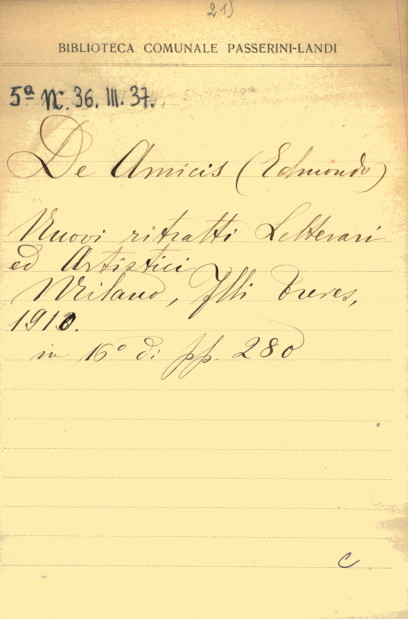 21)
BIBLIOTECA COMUNALE PASSERINI-LANDI
5ª N. 36. III. 37.
De Amicis (Edmondo)
Nuovi ritratti Letterari
ed Artistici
Milano, Flli Treves,
1910.
in 16° di pp. 280
C